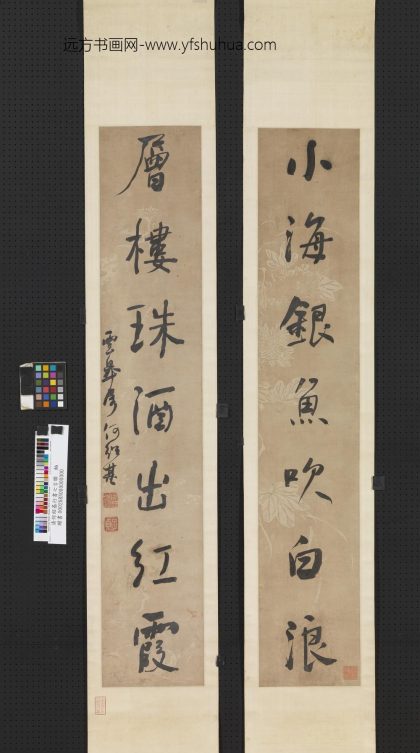 远方书画网-www.yfshuhua.com
小海銀魚吹白浪
層樓珠酒出紅霞
何紹基